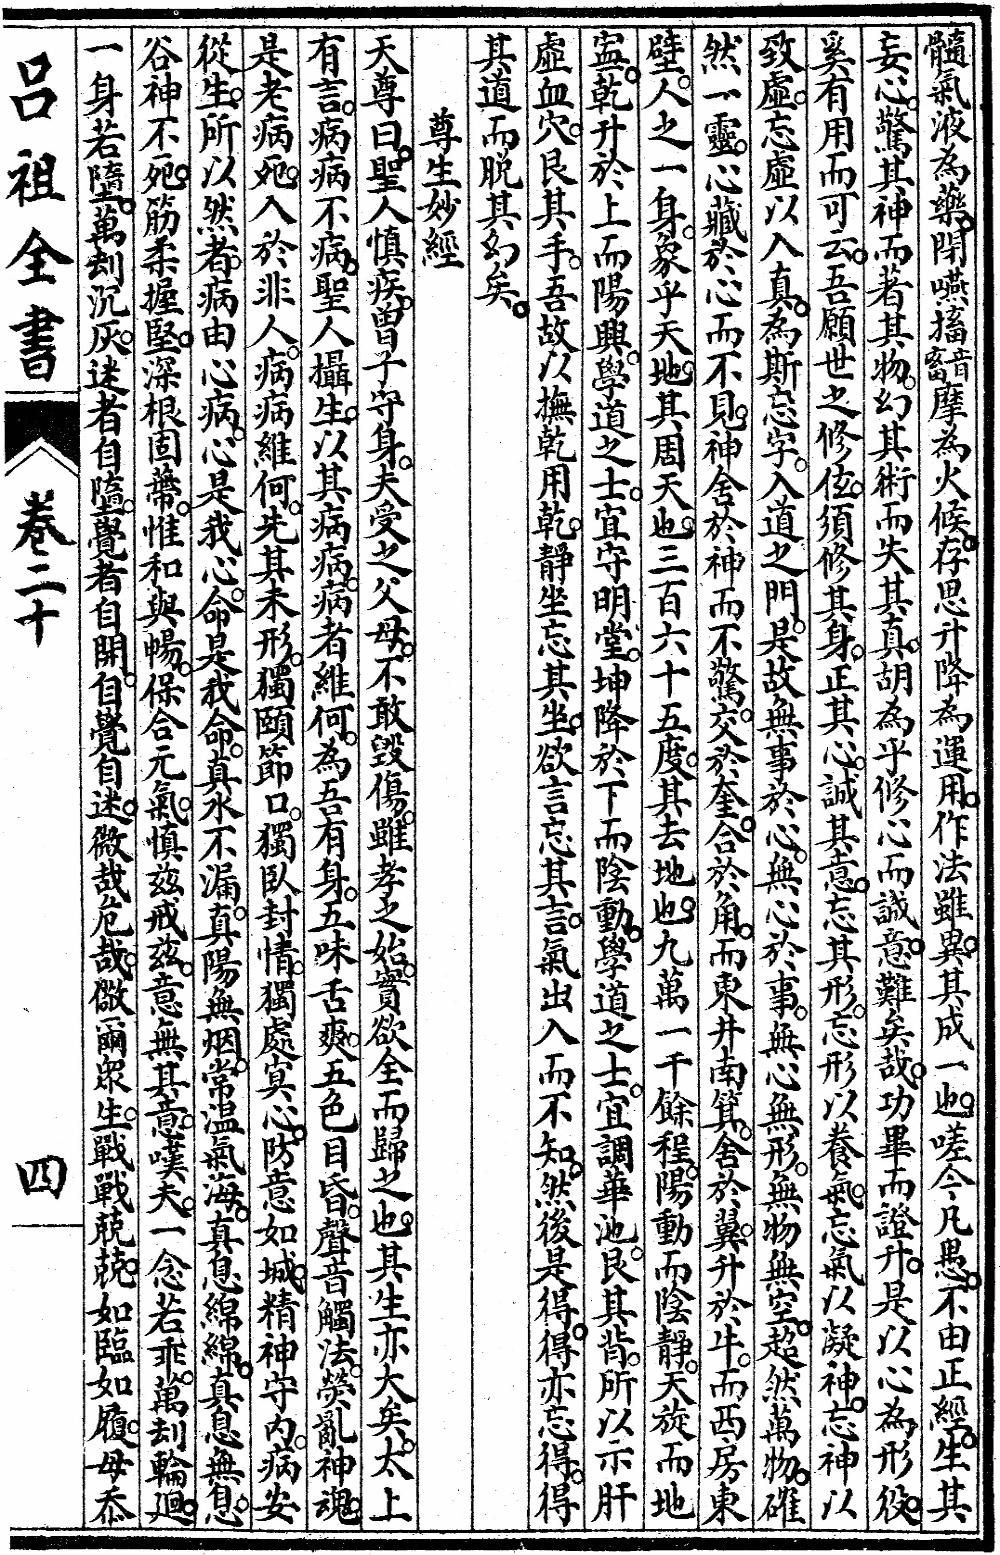 髓氣液為藥閉嚥搐音畜摩為火候存思升降為運用作法雖異其成一也嗟今凡愚不由正經生其
妄心驚其神而著其物幻其術而失其真胡為乎修心而誠意難矣哉功畢而證升是以心為形役
奚有用而可云吾願世之修伭須修其身正其心誠其意忘其形忘形以養氣忘氣以凝神忘神以
致虛忘虛以入真為斯忘字入道之門是故無事於心無心於事無心無形無物無空超然萬物確
然一靈心藏於心而不見神舍於神而不驚交於奎合於角而東井南箕舍於翼升於牛而西房東
壁人之一身象乎天地其周天也三百六十五度其去地也九萬一千餘程陽動而陰靜天旋而地
盍乾升於上而陽興學道之士宜守明堂坤降於下而陰動學道之士宜調華池艮其背所以示肝
虛血穴艮其手吾故以撫乾用乾靜坐忘其坐欲言忘其言氣出入而不知然後是得得亦忘得得
其道而脫其幻矣
尊生妙經
天尊曰聖人慎疾曾子守身夫受之父母不敢毀傷雖孝之始實欲全而歸之也其生亦大矣太上
有言病病不病聖人攝生以其病病病者維何為吾有身五味舌爽五色目昏聲音觸法熒亂神魂
是老病死入於非人病病維何先其未形獨頤節口獨臥封情獨處寘心防意如城精神守內病安
從生所以然者病由心病心是我心命是我命真水不漏真陽無烟常温氣海真息綿綿真息無息
谷神不死筋柔握堅深根固蔕惟和與暢保合元氣慎茲戒茲意無其意嘆夫一念若乖萬刦輪廻
一身若墮萬刦沉灰迷者自墮覺者自開自覺自迷微哉危哉儆爾眾生戰戰兢兢如臨如履母忝
呂祖全書
卷二十
四